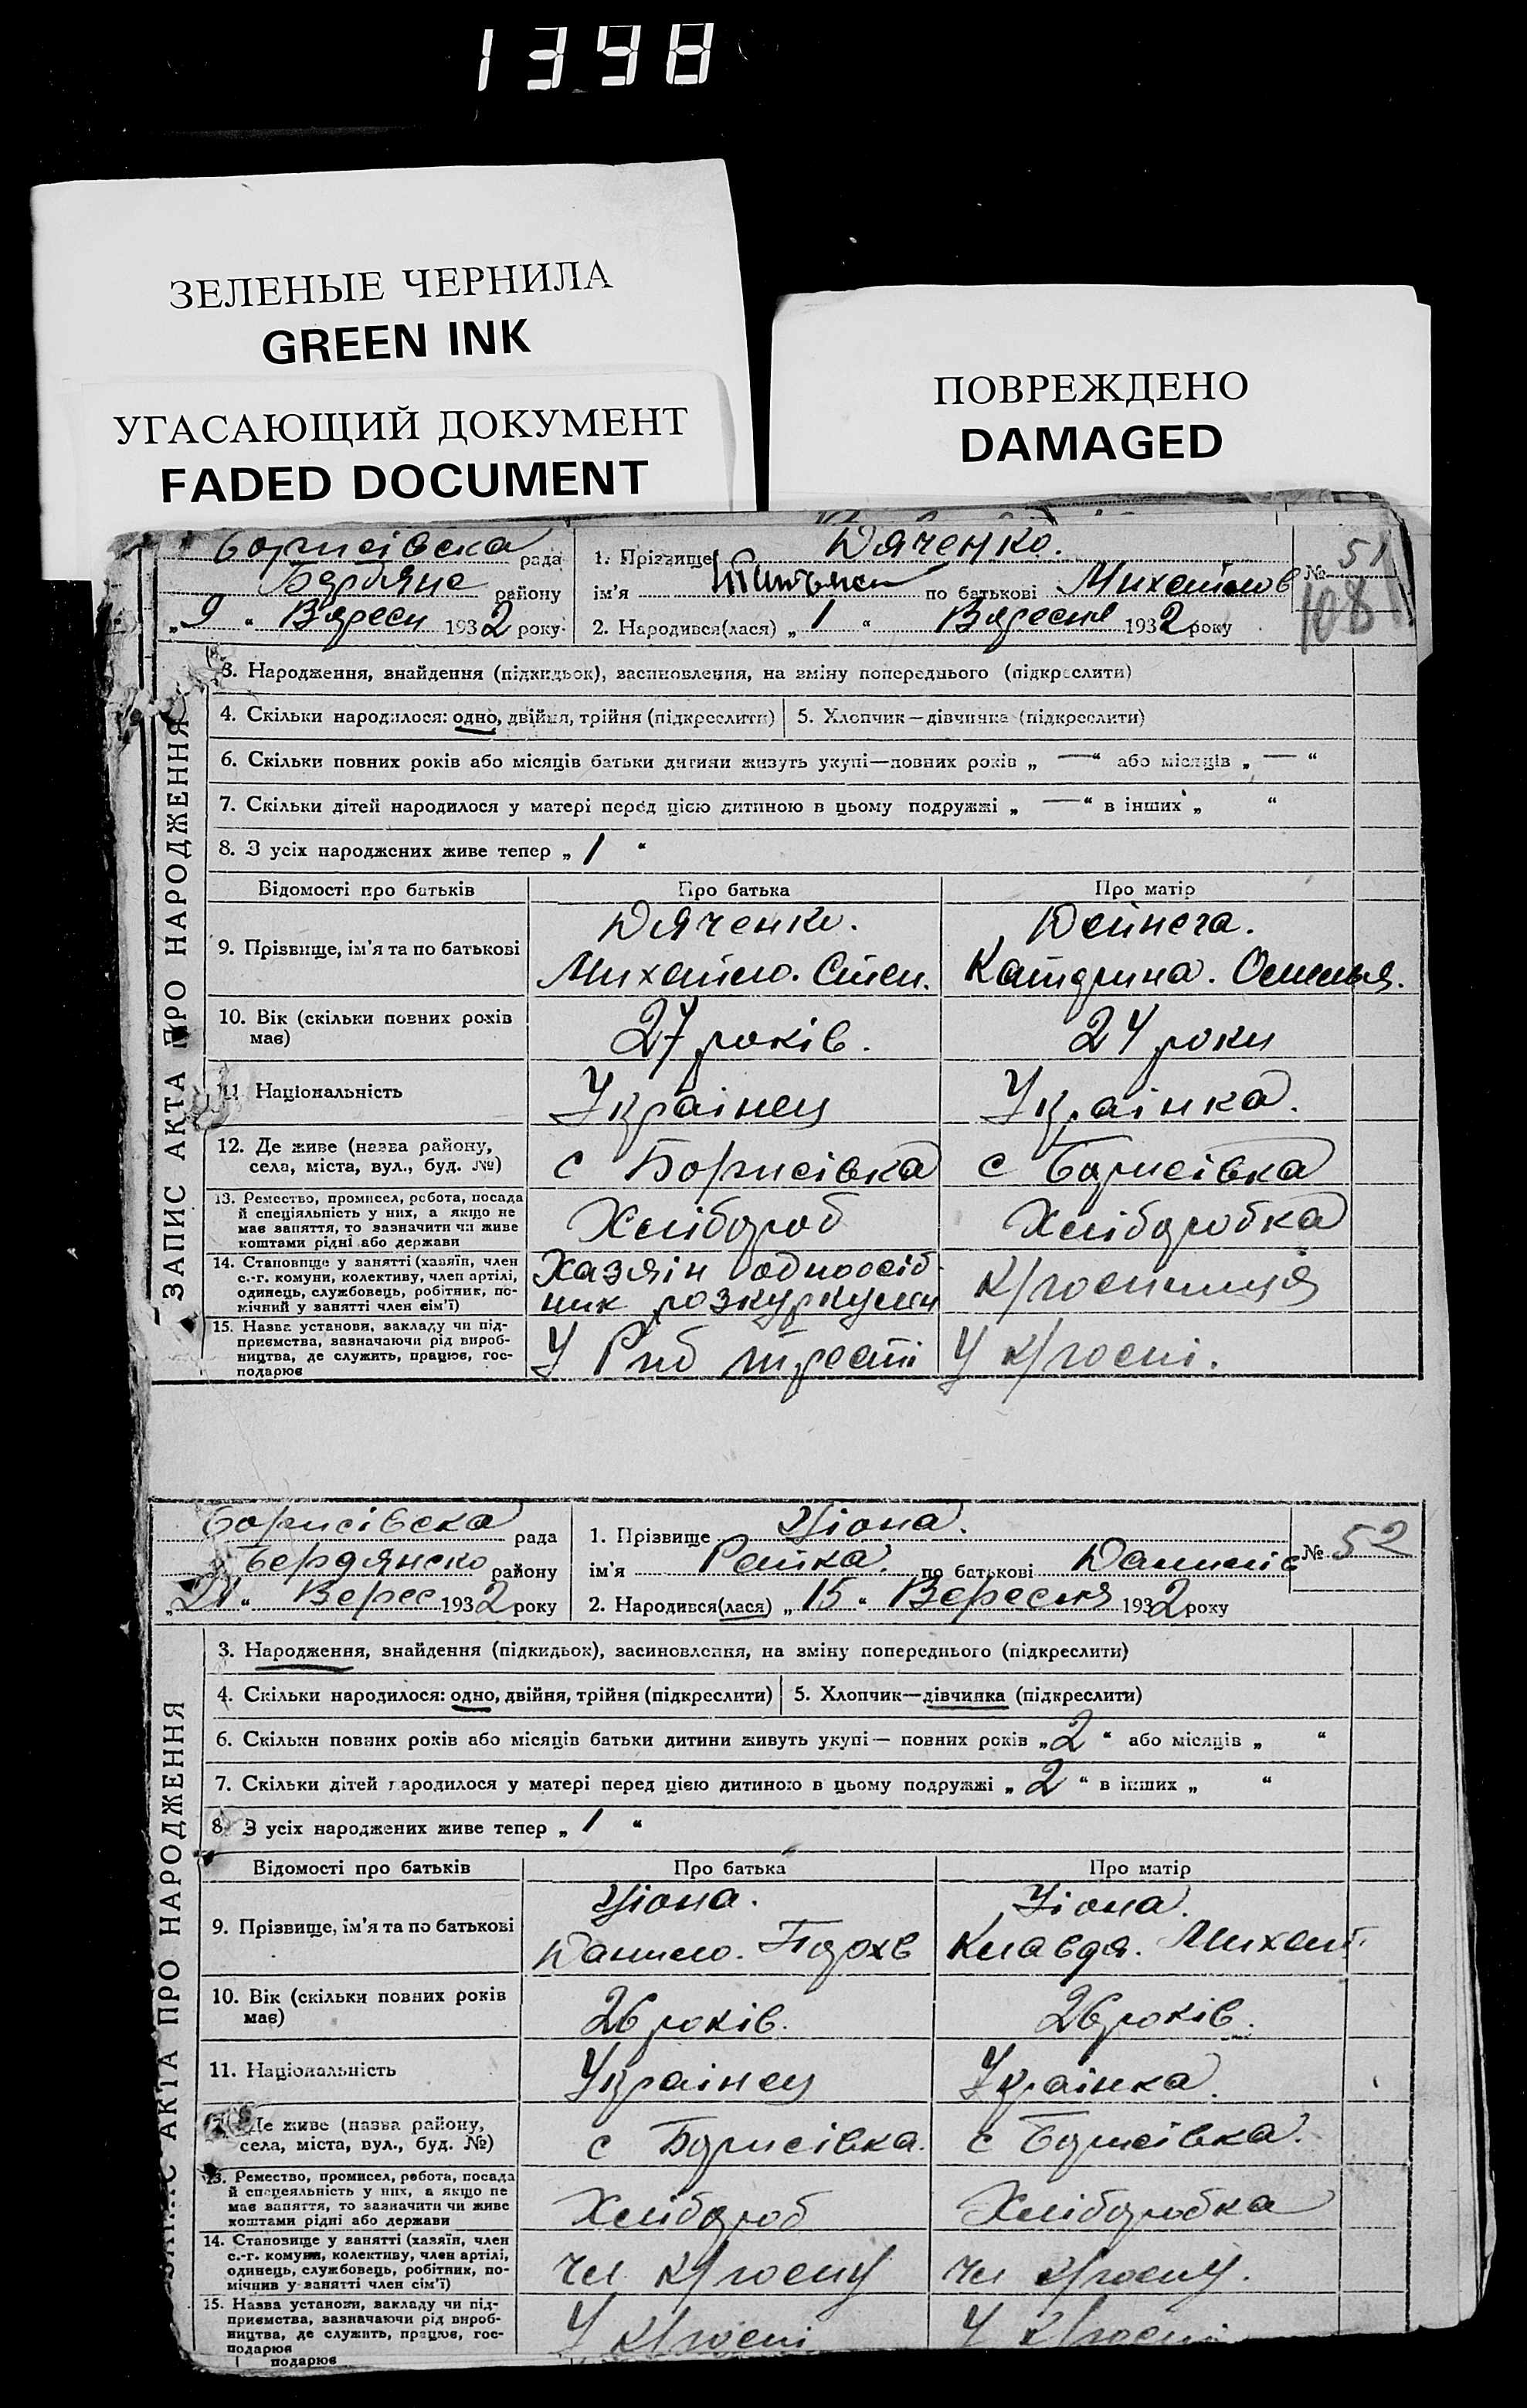 1398
ЗЕЛЕНЫЕ ЧЕРНИЛА
GREEN INK
УГАСАЮЩИЙ ДОКУМЕНТ
FADED DOCUMENT
ПОВРЕЖДЕНО
DAMAGED
ЗАПИС АКТА ПРО НАРОДЖЕННЯ
Борисівска рада
району
„9“ 1932 року
1. Прізвище Дяченко.
ім'я по батькові Михайлов
2. Народився(лася) „1“ 1932 року
№ 51
108
3. Народження, знайдення (підкидьок), засиновлення, на зміну попереднього (підкреслити)
4. Скільки народилося: одно, двійня, трійня (підкреслити)
5. Хлопчик—дівчинка (підкреслити)
6. Скільки повних років або місяців батьки дитини живуть укупі—повних років „ — “ або місяців „ — “
7. Скільки дітей народилося у матері перед цією дитиною в цьому подружжі „ — “ в інших „ “
8. З усіх народжених живе тепер „ 1 “
Відомості про батьків Про батька Про матір
9. Прізвище, ім'я та по батькові
Дяченко.
Михайло. Степ.
Дейнега.
Катерина.
10. Вік (скільки повних років
має)
27 років.
24 роки
11. Національність
Украінец
Украінка.
12. Де живе (назва району,
села, міста, вул., буд. №)
с Борисівка
с Борисівка
13. Ремество, промисел, робота, посада
й спеціяльність у них, а якщо не
має заняття, то зазначити чи живе
коштами рідні або держави
Хлібороб
Хліборобка
14. Становище у занятті (хазяїн, член
с.-г. комуни, колективу, член артілі,
одинець, службовець, робітник, по-
мічний у занятті член сім'ї)
Хазяін одноосіб
ник
15. Назва установи, закладу чи під-
приємства, зазначаючи рід вироб-
ництва, де служить, працює, гос-
подарює
У Риб тресті
У к/госпі.
ЗАПИС АКТА ПРО НАРОДЖЕННЯ
Борисівска рада
Бердянско району
„21“ Верес 1932 року
1. Прізвище
ім'я Раіка. по батькові Данилів
2. Народився(лася) „15“ Вересня 1932 року
№ 52
3. Народження, знайдення (підкидьок), засиновлення, на зміну попереднього (підкреслити)
4. Скільки народилося: одно, двійня, трійня (підкреслити)
5. Хлопчик—дівчинка (підкреслити)
6. Скільки повних років або місяців батьки дитини живуть укупі— повних років „2“ або місяців „ “
7. Скільки дітей народилося у матері перед цією дитиною в цьому подружжі „2“ в інших „ “
8. З усіх народжених живе тепер „ 1 “
Відомості про батьків Про батька Про матір
9. Прізвище, ім'я та по батькові
Данило.
Клавдя. Михай
10. Вік (скільки повних років
має)
26 років.
26 років.
11. Національність
Украінец
Украінка.
12. Де живе (назва району,
села, міста, вул., буд. №)
с Борисівка.
с Борисівка.
13. Ремество, промисел, робота, посада
й спецеяльність у них, а якщо не
має заняття, то зазначити чи живе
коштами рідні або держави
Хлібороб
Хліборобка
14. Становище у занятті (хазяїн, член
с.-г. комуни, колективу, член артілі,
одинець, службовець, робітник, по-
мічнив у занятті член сім'ї)
Чл к/госпу
Чл к/госпу.
15. Назва установи, закладу чи під-
приємства, зазначаючи рід вироб-
ництва, де служить, працює, гос-
подарює
подарює
У к/госпі
У к/госпі